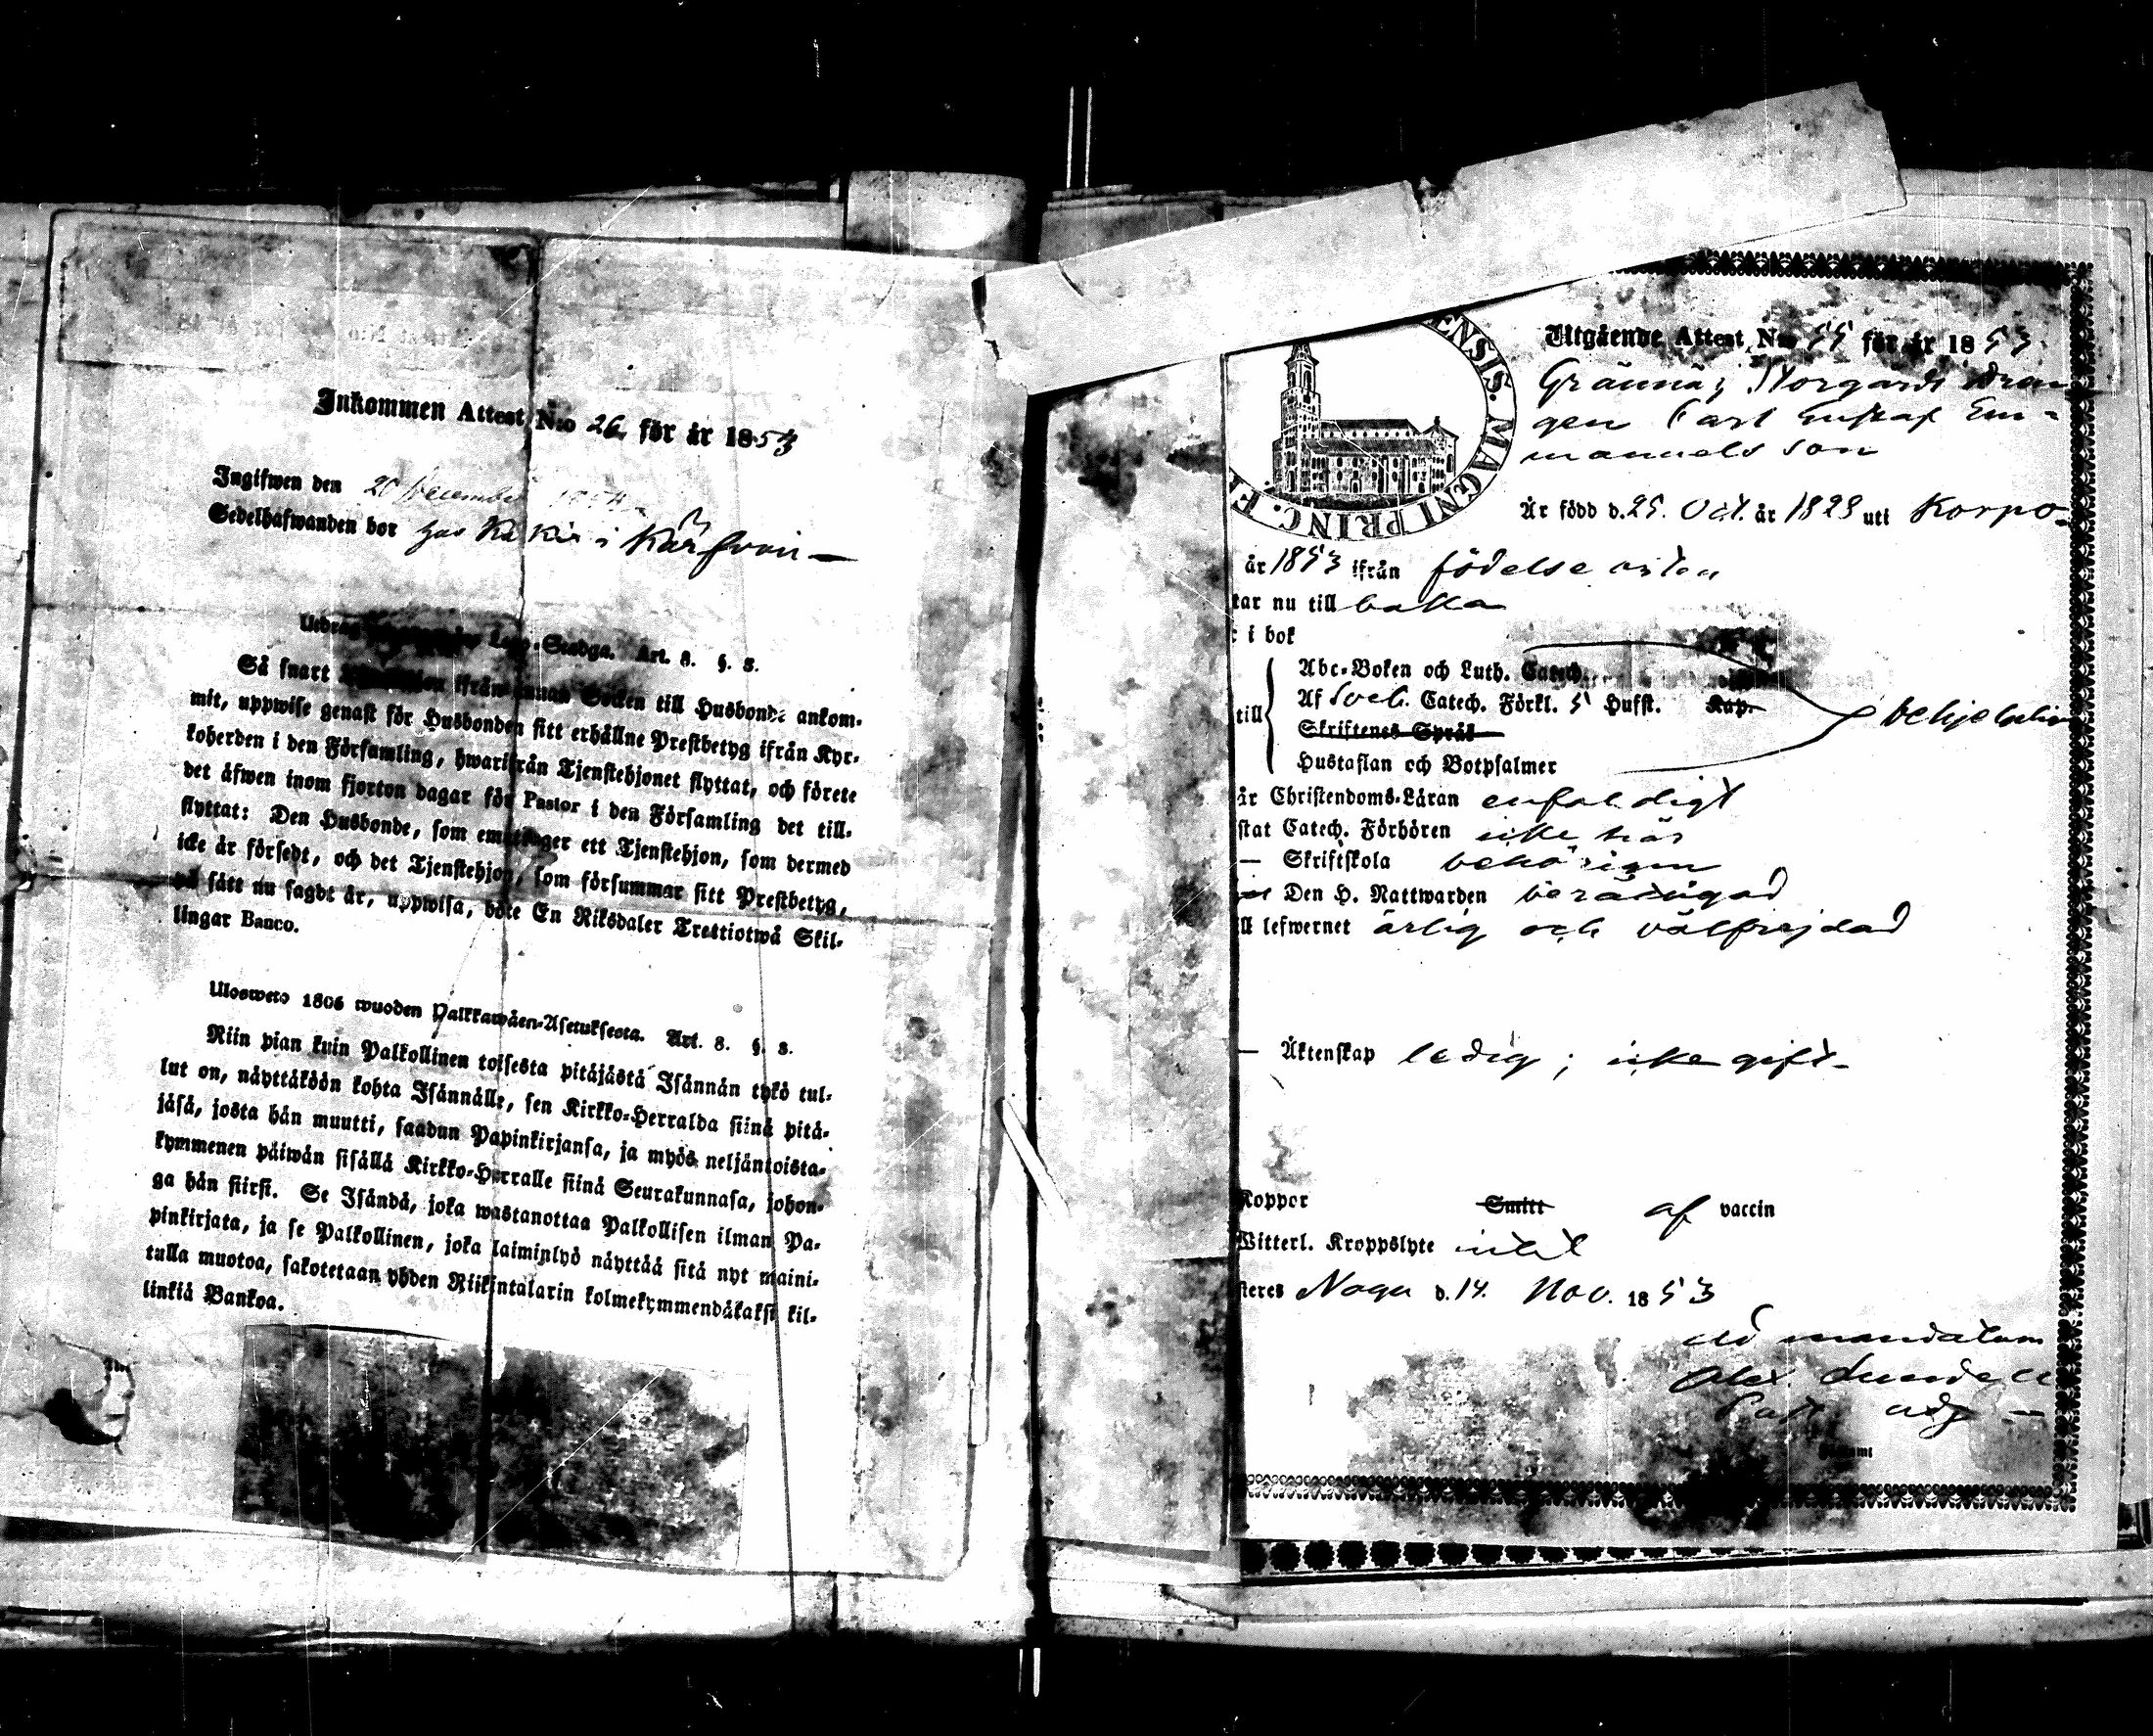 Inkommen Attest N:o 26 för år 1853
Ingifwen den 20 December
Sedelhafwanden bor hos i
Stadga. Art. 8. §. 8.
Så snart ifrån annan Socken till Husbonde ankom-
mit, uppwise genast för Husbonden sitt erhållne Prestbetyg ifrån Kyr-
koherden i den Församling, hwarifrån Tjenstehjonet flyttat, och förete
det äfwen inom fjorton dagar för Pastor i den Församling det till-
flyttat: Den Husbonde, som emottager ett Tjenstehjon, som dermed
icke är försedt, och det Tjenstehjon, som försummar sitt Prestbetyg,
på sätt nu sagdt är, uppwisa, böte En Riksdaler Trettiotwå Skil-
lingar Banco.
Ulosweto 1805 wuoden Palkkawäen-Asetuksesta. Art. 8. §. 8.
Niin pian kuin Palkollinen toisesta pitäjästä Isännän tykö tul-
lut on, näyttäköön kohta Isännälle, sen Kirkko-Herralda siinä pitä-
jäsä, josta hän muutti, saadun Papinkirjansa, ja myös neljäntoista-
kymmenen päiwän sisällä Kirkko-Herralle siinä Seurakunnasa, johon-
ga hän siirsi. Se Isändä, joka wastanottaa Palkollisen ilman Pa-
pinkirjata, ja se Palkollinen, joka laiminlyö näyttää sitä nyt maini-
tulla muotoa, sakotetaan yhden Riikintalarin kolmekymmendäkaksi kil-
linkiä Bankoa.
ENSIS. MAGNI PRINC. F
Utgående Attest N:o 55 för år 1853
Grännäs Storgårds drän
gen Carl Gustaf Em-
manuels son
Är född d. 25. Oct. år 1828 uti Korpo
år 1853 ifrån födelse orten
tar nu till baka
i bok
Abc-Boken och Luth. Catech.
till Af Sveb. Catech. Förkl. 5 Hufst. Kap. behjelplig
Skriftenes Språk
Hustaflan och Botpsalmer
är Christendoms-Läran enfaldigt
stat Catech. Förhören icke här
— Skriftskola behörigen
Den H. Nattwarden berättigad
ll lefwernet ärlig och välfrejdad
— Äktenskap ledig; icke gift
Koppor Smitt af vaccin
Witterl. Kroppslyte intet
steres Nagu d. 14. Nov. 1853
ad mandatum
Alex. Lundell
Past. adj